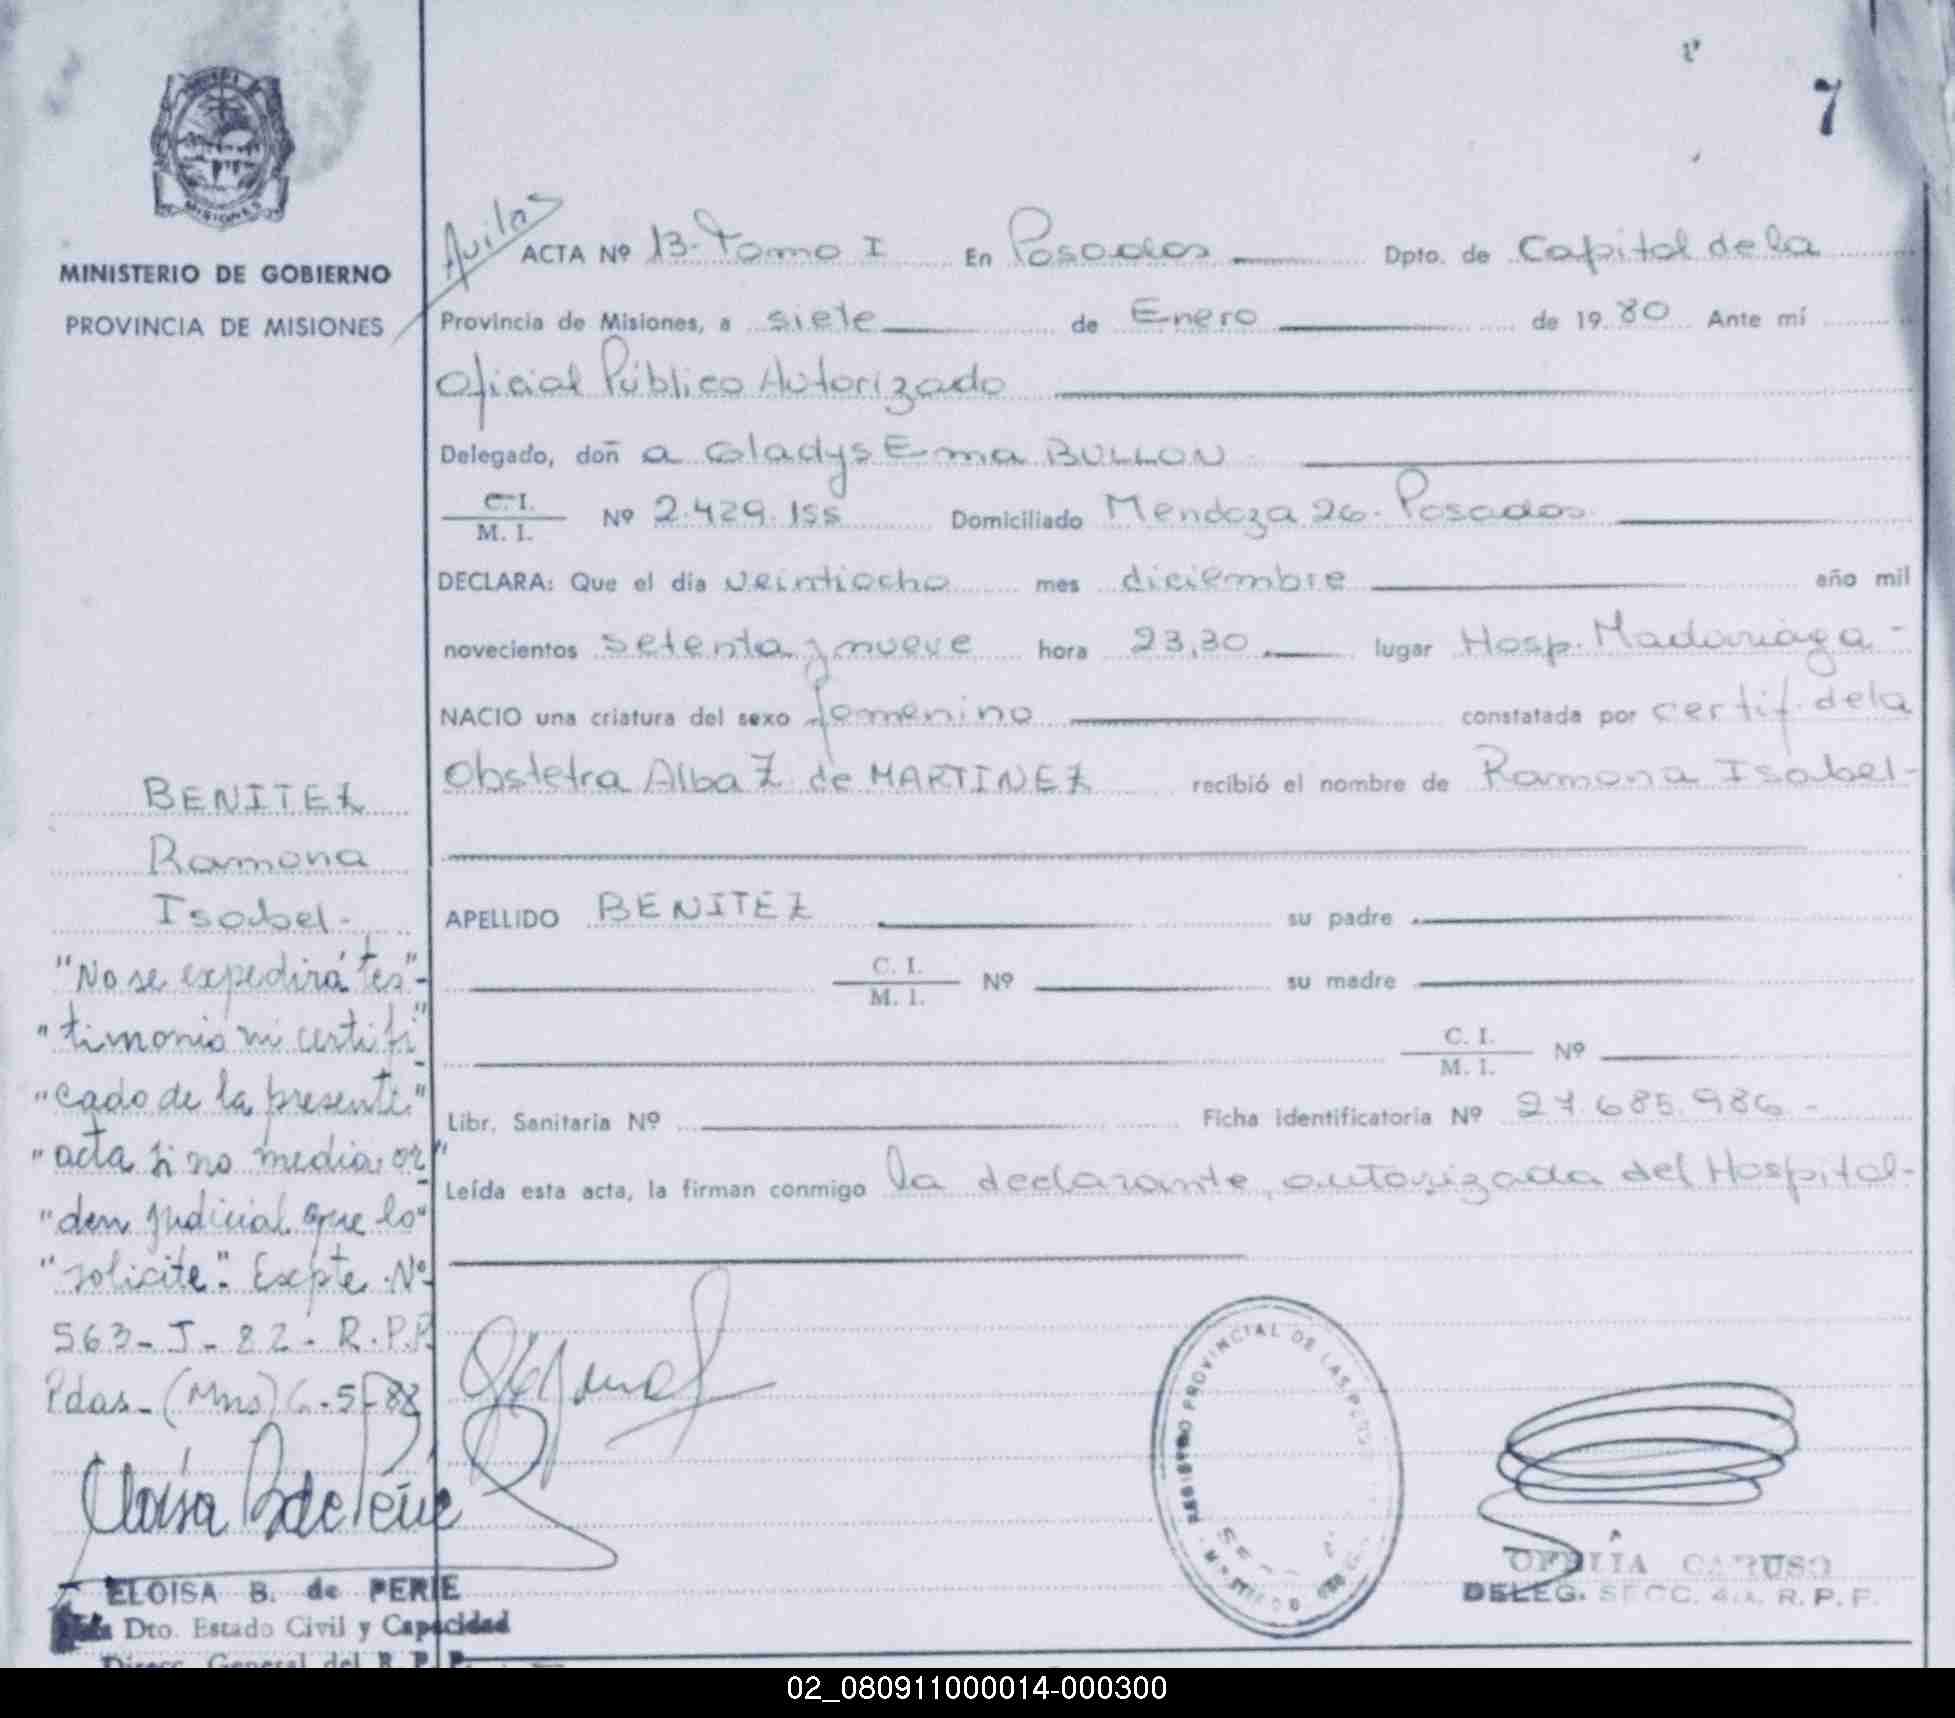 7
MISIONES
MINISTERIO DE GOBIERNO
PROVINCIA DE MISIONES
ACTA Nº 13- Tomo I En Posadas Dpto. de Capital de la
Provincia de Misiones, a siete de Enero de 19 80 Ante mí
Oficial Público Autorizado
Delegado, doñ a Gladys Ema BULLON
C. I.
M. I.
Nº 2.429.155 Domiciliado Mendoza 26. Posadas
DECLARA: Que el día veintiocho mes diciembre año mil
novecientos setenta y nueve hora 23,30 lugar Hosp. Madariaga-
NACIO una criatura del sexo femenino constatada por certif. de la
Obstetra Alba Z de MARTINEZ recibió el nombre de Ramona Isabel-
APELLIDO BENITEZ su padre
C. I.
M. I.
Nº su madre
C. I.
M. I.
Nº
Libr. Sanitaria Nº Ficha identificatoria Nº 27.685.986-
Leída esta acta, la firman conmigo la declarante, autorizada del Hospital-
BENITEZ
Ramona
Isabel-
"No se expedirá tes"-
"timonio ni certifi"-
"cado de la presente"
"acta si no media or"-
"den judicial que lo"
"solicite". Expte. Nº
563-J-82-R.P.P.
Pdas-(Mns) 6-5-88
ELOISA B. de PERIE
Dto. Estado Civil y Capacidad
Direcc. General del R. P. P.
REGISTRO PROVINCIAL DE LAS
OFELIA CARUSO
DELEG. SECC. 4a. R. P. P.
02_080911000014-000300